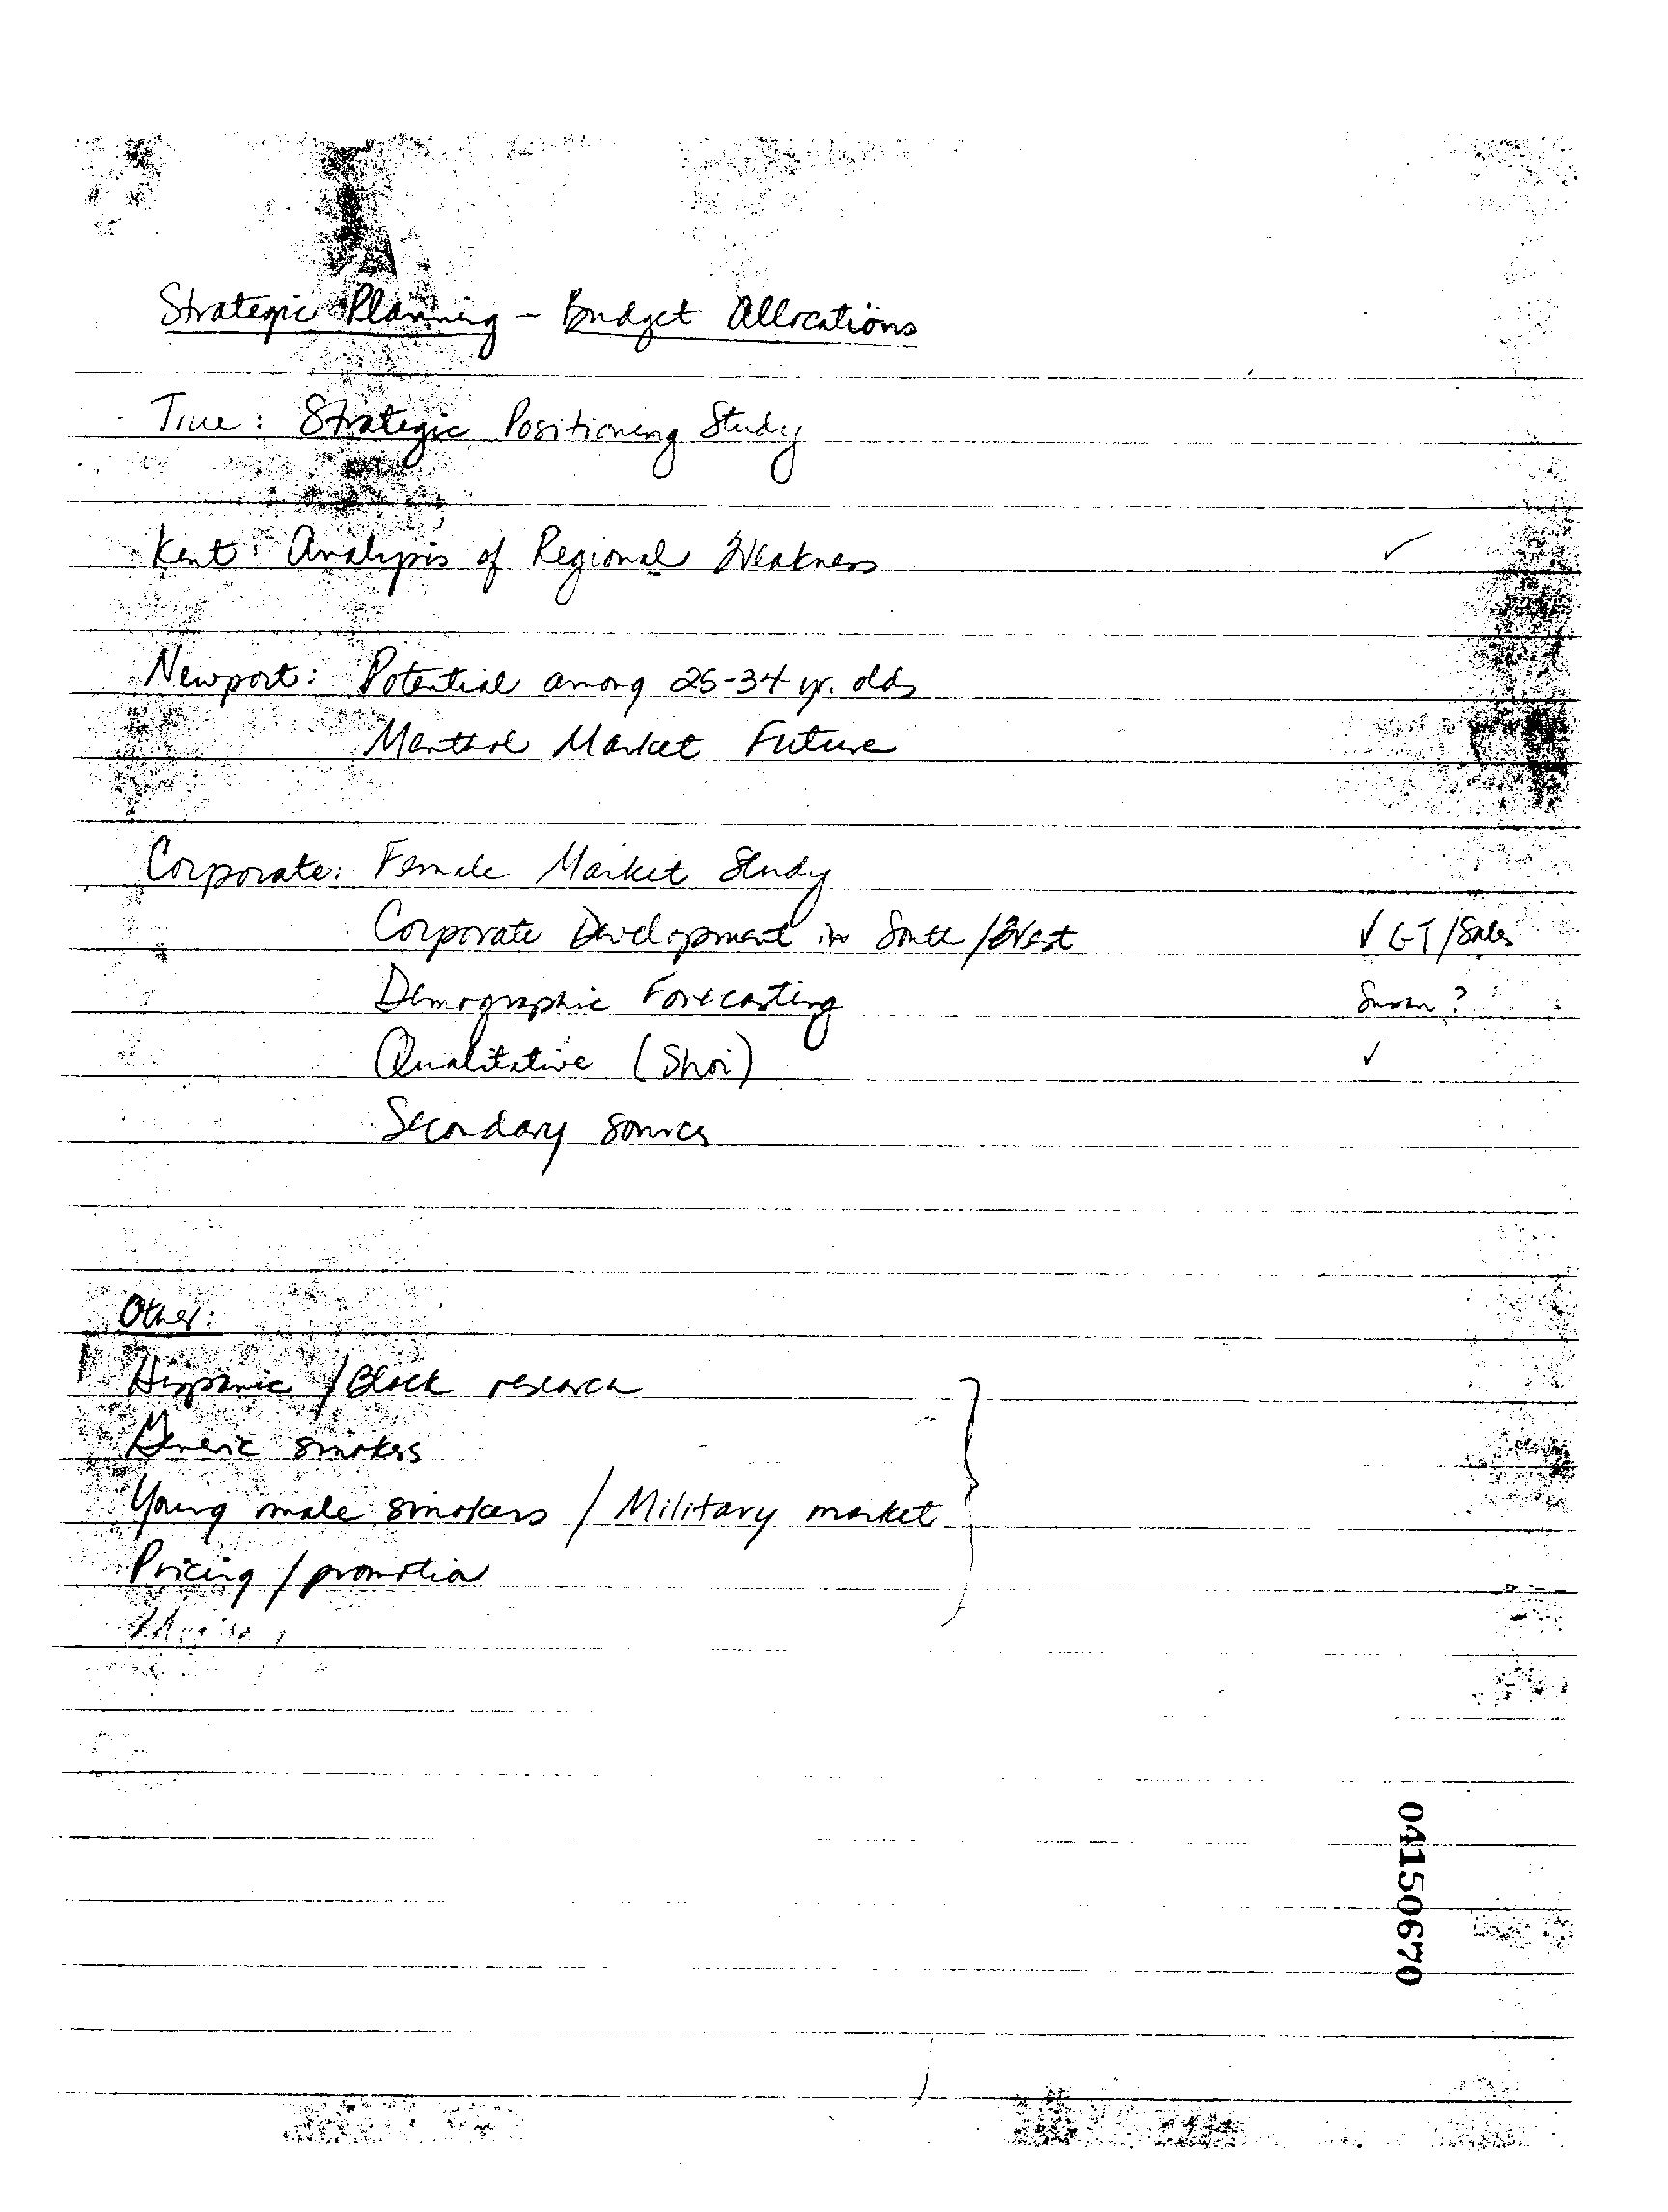 Strategic Planning - Budget Allocations
True: Strategic Positioning Study
Kent: Analysis of Regional Weakness ✓
Newport: Potential among 25-34 yr. olds
Menthol Market Future
Corporate: Female Market Study
Corporate Development in South/West ✓ GT/Sales
Demographic Forecasting Susan?
Qualitative (Shoi) ✓
Secondary sources
Other:
Hispanic/Black research
Generic smokers
Young male smokers / Military market
Pricing/promotion
04150670